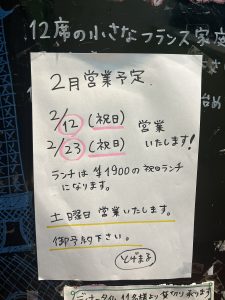 12席の小さなフランス家庭
2月営業予定
2/12(祝日) 営業
2/23(祝日) いたします!
ランチは¥1900の祝日ランチ
になります。
土曜日 営業いたします。
御予約下さい。